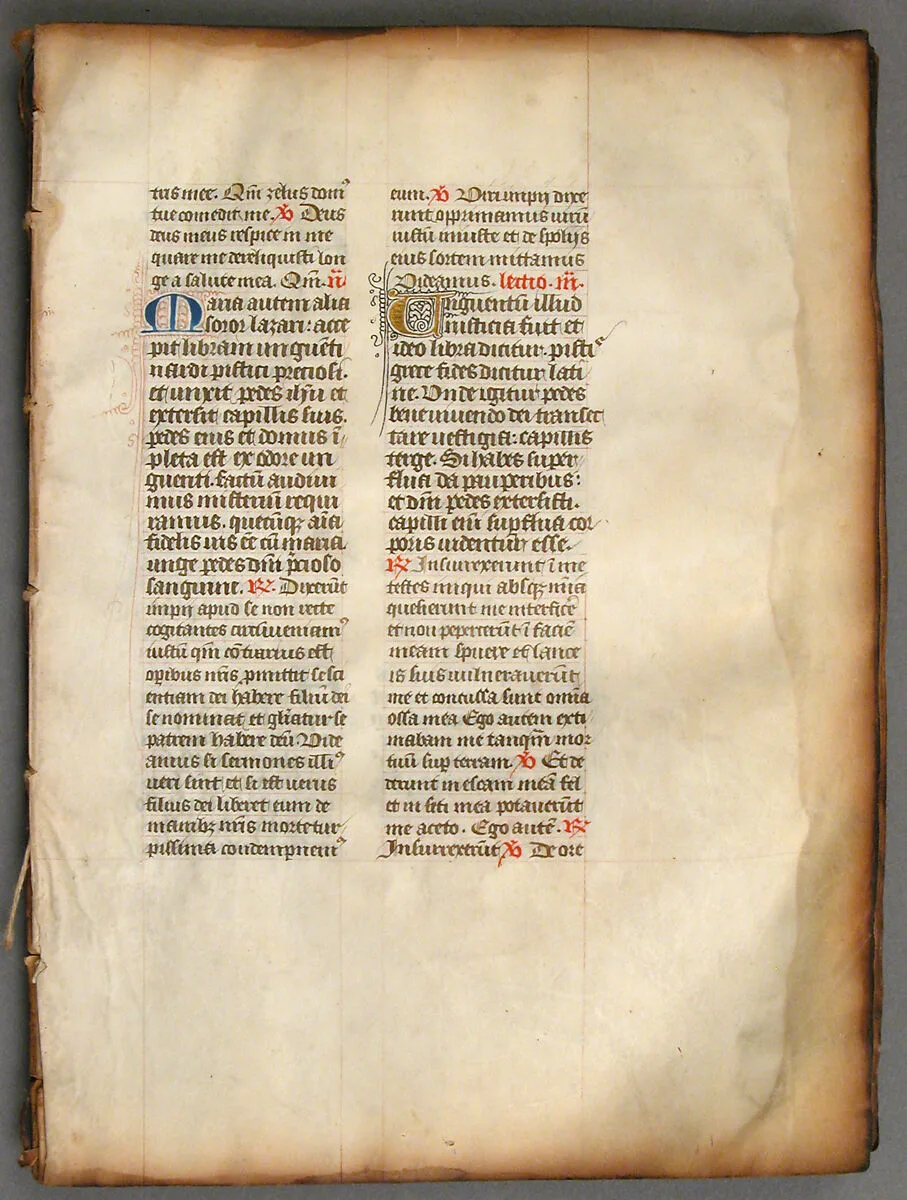 tris mee. Qm̄ zelus domꝰ
tue comedit me. V̷ Deus
deus meus respice in me
quare me dereliquisti lon
ge a salute mea. Qm̄. ii.
Maria autem alia
soror lazari: acce
pit libram unguēti
nardi pistici preciosi.
et unxit pedes ihū et
extersit capillis suis.
pedes eius et domus ī
pleta est ex odore un
guenti. factū audiui
mus misteriū requi
ramus. quecūqꝫ aīa
fidelis uis eē cū maria
unge pedes dn̄i p̄cioso
sanguine. R̷. Dixerūt
impij apud se non recte
cogitantes circūueniamꝰ
iustū qm̄ cōtrarius est
oꝑibus nr̄is ꝓmittit se sci
entiam dei habere filiū dei
se nominat et glīatur se
patrem habere deū. Vide
amus si sermones illiꝰ
ueri sunt et si est uerus
filius dei liberet eum de
manibꝫ nr̄is morte tur
pissima condempnemꝰ
eum. V̷ Viri impij dixe
runt opprimamus uirū
iustū iniuste et de spolijs
eius sortem mittamus
Videamus. lectio. iii.
Unguentū illud
iusticia fuit et
ideo libra dicitur. pistiᶜ
grece fides dicitur lati
ne. Vnde igitur pedes
bene uiuendo dei transec
tare uestigia: capillis
terge. Si habes super
flua da pauperibus:
et dn̄i pedes extersisti.
capilli eni᷒ suꝑflua cor
poris uidentur esse.
R̷ Insurrexerunt ī me
testes iniqui absqꝫ mīa
quesierunt me interficē
et non pepercerūt ī faciē
meam spuere et lance
is suis uulnerauerūt
me et concussa sunt omīa
ossa mea Ego autem exti
mabam me tanqm̄ mor
tuū suꝑ terram. V̷ Et de
derunt in escam meā fel
et in siti mea potauerūt
me aceto. Ego autē. R̷
Insurrexerūt V̷ De ore